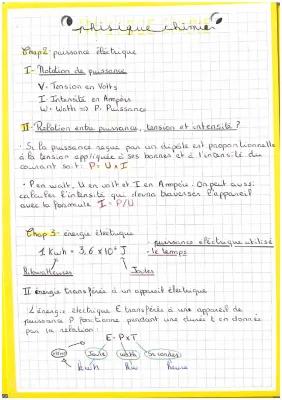 physique chimie
Chap 2: puissance électrique
I - Notation de puissance
V - Tension en Volts
I - Intensité en Ampère
W - Watts => P - Puissance
II - Relation entre puissance, tension et intensité ?
• Si la puissance reçue par un dipôle est proportionnelle
à la tension appliquée à ses bornes et à l'intensité du
courant soit : P = U x I
• P en watt, U en volt et I en Ampère. On peut aussi
calculer l'intensité qui devra traverser l'appareil
avec la formule I = P/U
Chap 3: énergie électrique
puissance électrique utilisé
1 Kwh = 3,6 x 10⁶ J
- le temps
Kilowattheures
Joules
II énergie transférée à un appareil électrique
L'énergie électrique E transférée à une appareil de
puissance P fonctionne pendant une durée t en donnée
par la relation :
E = P x T
Joule
watth
Secondes
kwh
Kw
heure